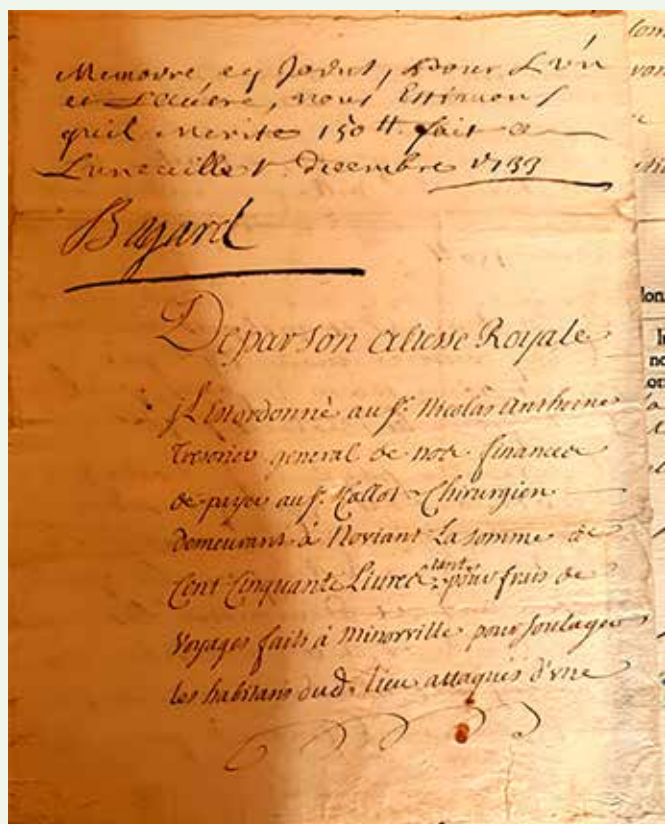 Memoire cy Joint, pour L'un
et L'autre, nous Estimons
quil merite 150 tt. fait a
Luneville 1. decembre 1733
Bagard
De par son altesse Royale
Il est ordonné au Sr. Nicolas Anthoine
Tresorier general de nos finances
de payer au Sr. Hallot Chirurgien
demeurant à Noviant La somme de
Cent Cinquante Livres tant pour frais de
Voyages faits à Minorville pour soulager
les habitans dud. lieu attaqués d'une